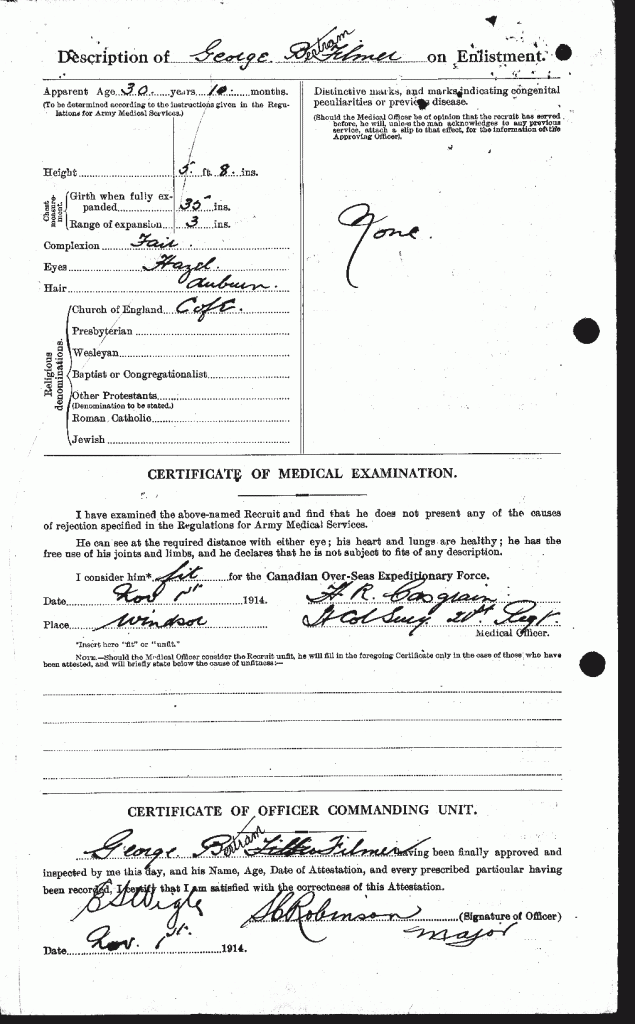 Description of George Bertram Filmer on Enlistment.
Apparent Age 30 years 10 months.
(To be determined according to the instructions given in the Regu-
lations for Army Medical Services.)
Height 5 ft 8 ins.
Chest measure-
ment.
Girth when fully ex-
panded 35 ins.
Range of expansion 3 ins.
Complexion Fair
Eyes Hazel
Hair auburn.
Religious
denominations.
Church of England C of E.
Presbyterian
Wesleyan
Baptist or Congregationalist
Other Protestants
(Denomination to be stated.)
Roman Catholic
Jewish
Distinctive marks, and marks indicating congenital
peculiarities or previous disease.
(Should the Medical Officer be of opinion that the recruit has served
before, he will, unless the man acknowledges to any previous
service, attach a slip to that effect, for the information of the
Approving Officer).
None.
CERTIFICATE OF MEDICAL EXAMINATION.
I have examined the above-named Recruit and find that he does not present any of the causes
of rejection specified in the Regulations for Army Medical Services.
He can see at the required distance with either eye; his heart and lungs are healthy; he has the
free use of his joints and limbs, and he declares that he is not subject to fits of any description.
I consider him* fit for the Canadian Over-Seas Expeditionary Force.
Date Nov 1st 1914. H. R. Casgrain
Place Windsor Lt Col Surg 21st Regt.
Medical Officer.
*Insert here "fit" or "unfit."
NOTE.—Should the Medical Officer consider the Recruit unfit, he will fill in the foregoing Certificate only in the case of those who have
been attested, and will briefly state below the cause of unfitness:—
CERTIFICATE OF OFFICER COMMANDING UNIT.
George Bertram Filmer having been finally approved and
inspected by me this day, and his Name, Age, Date of Attestation, and every prescribed particular having
been recorded, I certify that I am satisfied with the correctness of this Attestation.
E S Wigle S C Robinson (Signature of Officer)
Major
Date Nov. 1st. 1914.